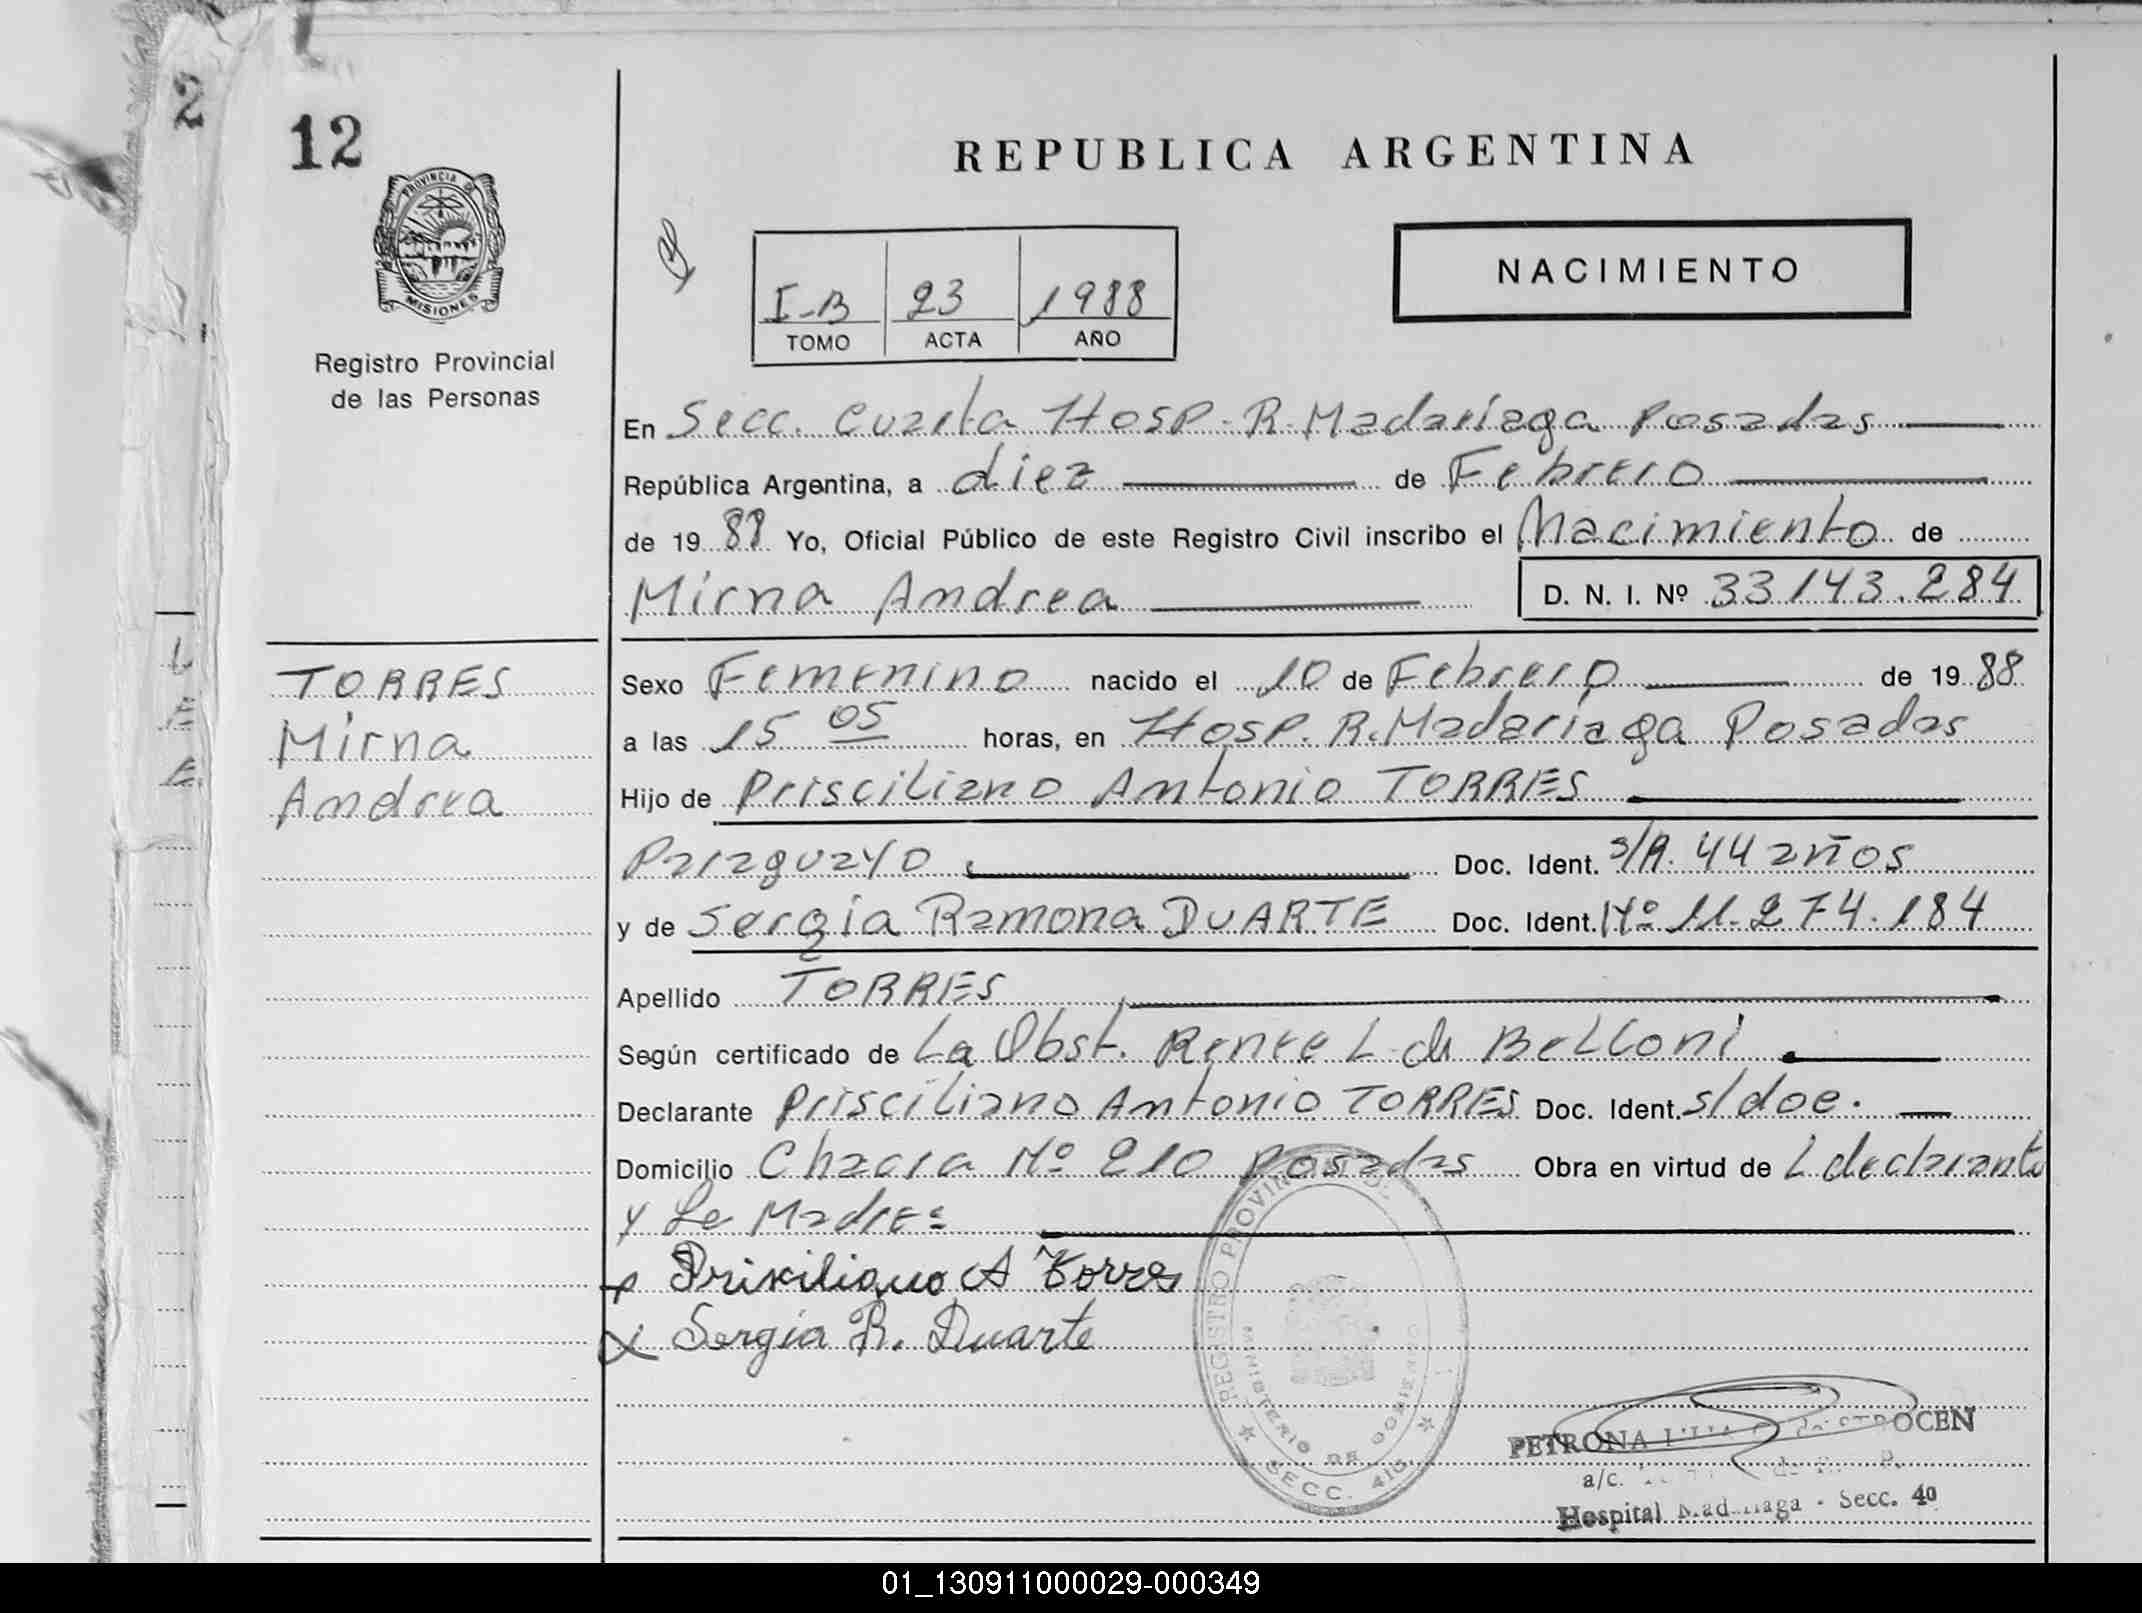 2
12
PROVINCIA DE
MISIONES
Registro Provincial
de las Personas
REPUBLICA ARGENTINA
NACIMIENTO
I-B 23 1988
TOMO ACTA AÑO
En Secc. Cuarta Hosp. R. Madariaga Posadas
República Argentina, a diez de Febrero
de 1988 Yo, Oficial Público de este Registro Civil inscribo el Nacimiento de
Mirna Andrea D. N. I. Nº 33143.284
TORRES
Mirna
Andrea
Sexo Femenino nacido el 10 de Febrero de 1988
a las 15 05 horas, en Hosp. R. Madariaga Posadas
Hijo de Prisciliano Antonio TORRES
Paraguayo Doc. Ident. s/R. 44 años
y de Sergia Ramona DUARTE Doc. Ident. Nº 11.274.184
Apellido TORRES
Según certificado de La Obst. Renee L. de Belloni
Declarante Prisciliano Antonio TORRES Doc. Ident. s/doc.
Domicilio Chacra Nº 210 Posadas Obra en virtud de L declarante
y La Madre
x Prixiliano A Torres
x Sergia R. Duarte
REGISTRO PROVINCIAL DE
MINISTERIO DE GOBIERNO
SECC. 4ta.
PETRONA
a/c.
Hospital Madariaga - Secc. 4a
01_130911000029-000349